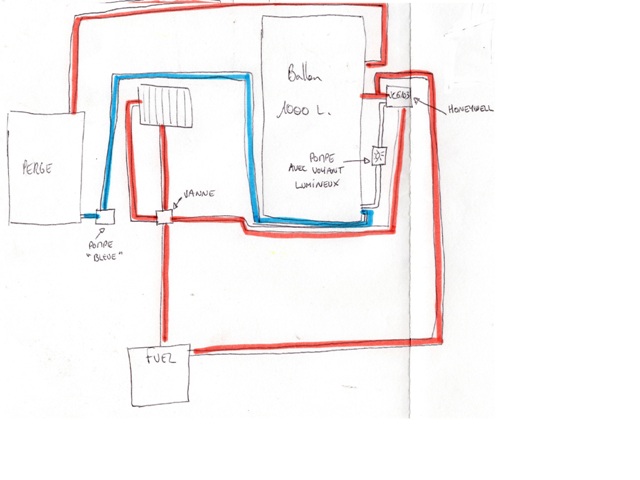 Ballon
1000 L.
VC6103
HONEYWELL
PERGE
POMPE
AVEC VOYANT
LUMINEUX
VANNE
POMPE
"BLEUE"
FUEL